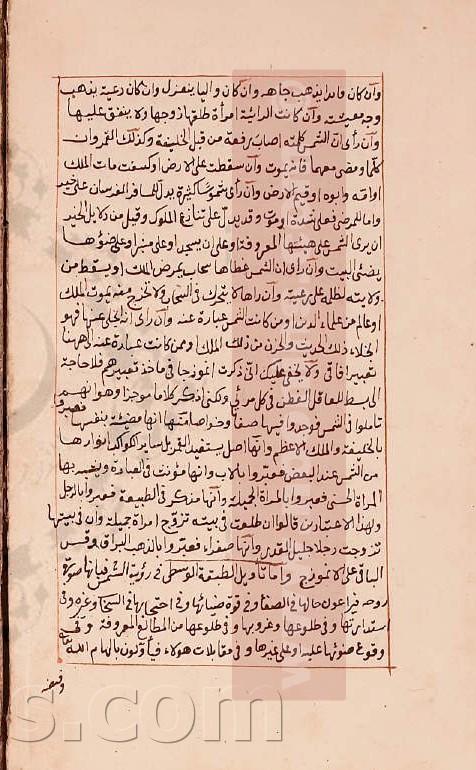 وان كان قايدا يذهب جاهه وان كان واليا ينعزل وان كان رعية يذهب
وجه معيشته وان كانت الرائية امرأة طلقها زوجها ولا ينفق عليها
وان رأى ان الشمس كلمته اصاب رفعة من قبل الخليفة وكذلك القمر وان
كلماه ومضى معهما فانه يموت وان سقطت على الارض او كسفت مات الملك
او ابوه او قيم الارض وان رأى شموسا كثيرة يدل للمسافر الفرسان على خير
واما للمرضى فعلى شدة او موت وقد يدل على تنازع الملوك وقيل من دلايل الخير
ان يرى الشمس على هيئتها المعروفة وعلى ان يسجد او على منبر او على ضوءها
يضئ البيت وان رأى ان الشمس غطاها سحاب يمرض الملك او يسقط من
ولايته لظلم على رعيته وان راها لا تتحرك في السحاب ولا تخرج منه يموت الملك
او عالم من علماء الدين او من كانت الشمس عبارة عنه وان رأى انجلى عنها فهو
انجلاء ذلك الحديث والحزن من ذلك الملك او ممن كانت عبارة عنه الى ههنا
تعبير افاقي ولا يخفى عليك انى ذكرت انموذجا في ماخذ تعبيرهم فلا حاجة
الى بسط للعاقل الفطن في كل مرئي ولكني اذكر كلاما موجزا وهو انهم
تأملوا في الشمس فوجدوا فيها صفات وخواصا منها انها مضيئة بنفسها فعبروا
بالخليفة والملك الاعظم وانها اصل يستفيد القمر بل سائر الكواكب انوارها
من الشمس عند البعض فعبروا بالاب وانها مؤنث في العبارة ويشبه بها
المراة الحسنى فعبروا بالمراة الجميلة وانها مذكر في الطبيعة فعبروا بالرجل
ولهذا الاعتبارين قالوا ان طلعت في بيته تزوج امراة جميلة وان في بيتها
تزوجت رجلا جليل القدر وانها صفراء فعبروا بالذهب البراق وقس
الباقي على الانموذج واما تأويل الطبقة الوسطى في رؤية الشمس فبانها صورة
روحه فيراعون حالها في الصفا وفي قوة ضيائها وفي احتجابها في السحاب وغيره وفي
استدارتها وفي طلوعها وغروبها وفي طلوعها من المطالع المعروفة وفي
وقوع ضوئها عليه او على غيرها وفي مقابلات هولاء فيأولون بالهام الله
s.com